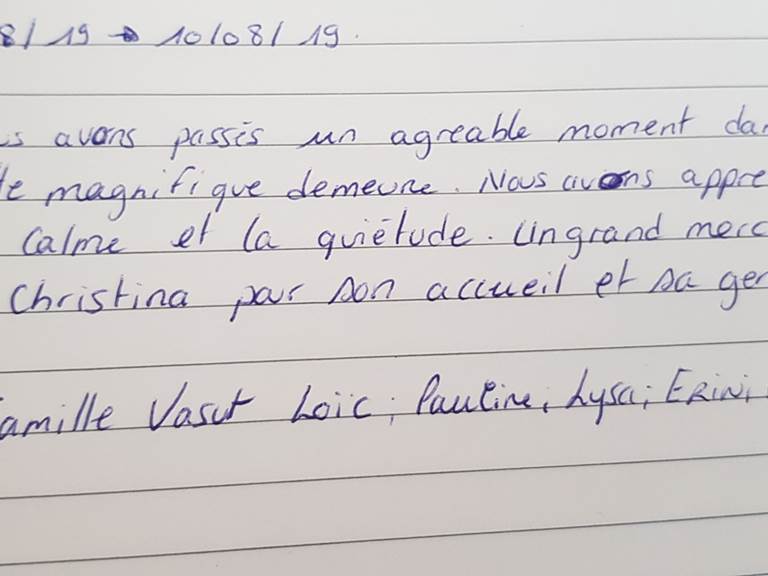 8/19 → 10/08/19.
s avons passés un agreable moment da
te magnifique demeure. Nous avons appre
Calme et la quiétude. Un grand merc
Christina par son accueil et sa gen
amille Vasut Loïc; Pauline, Lysa; Erini,